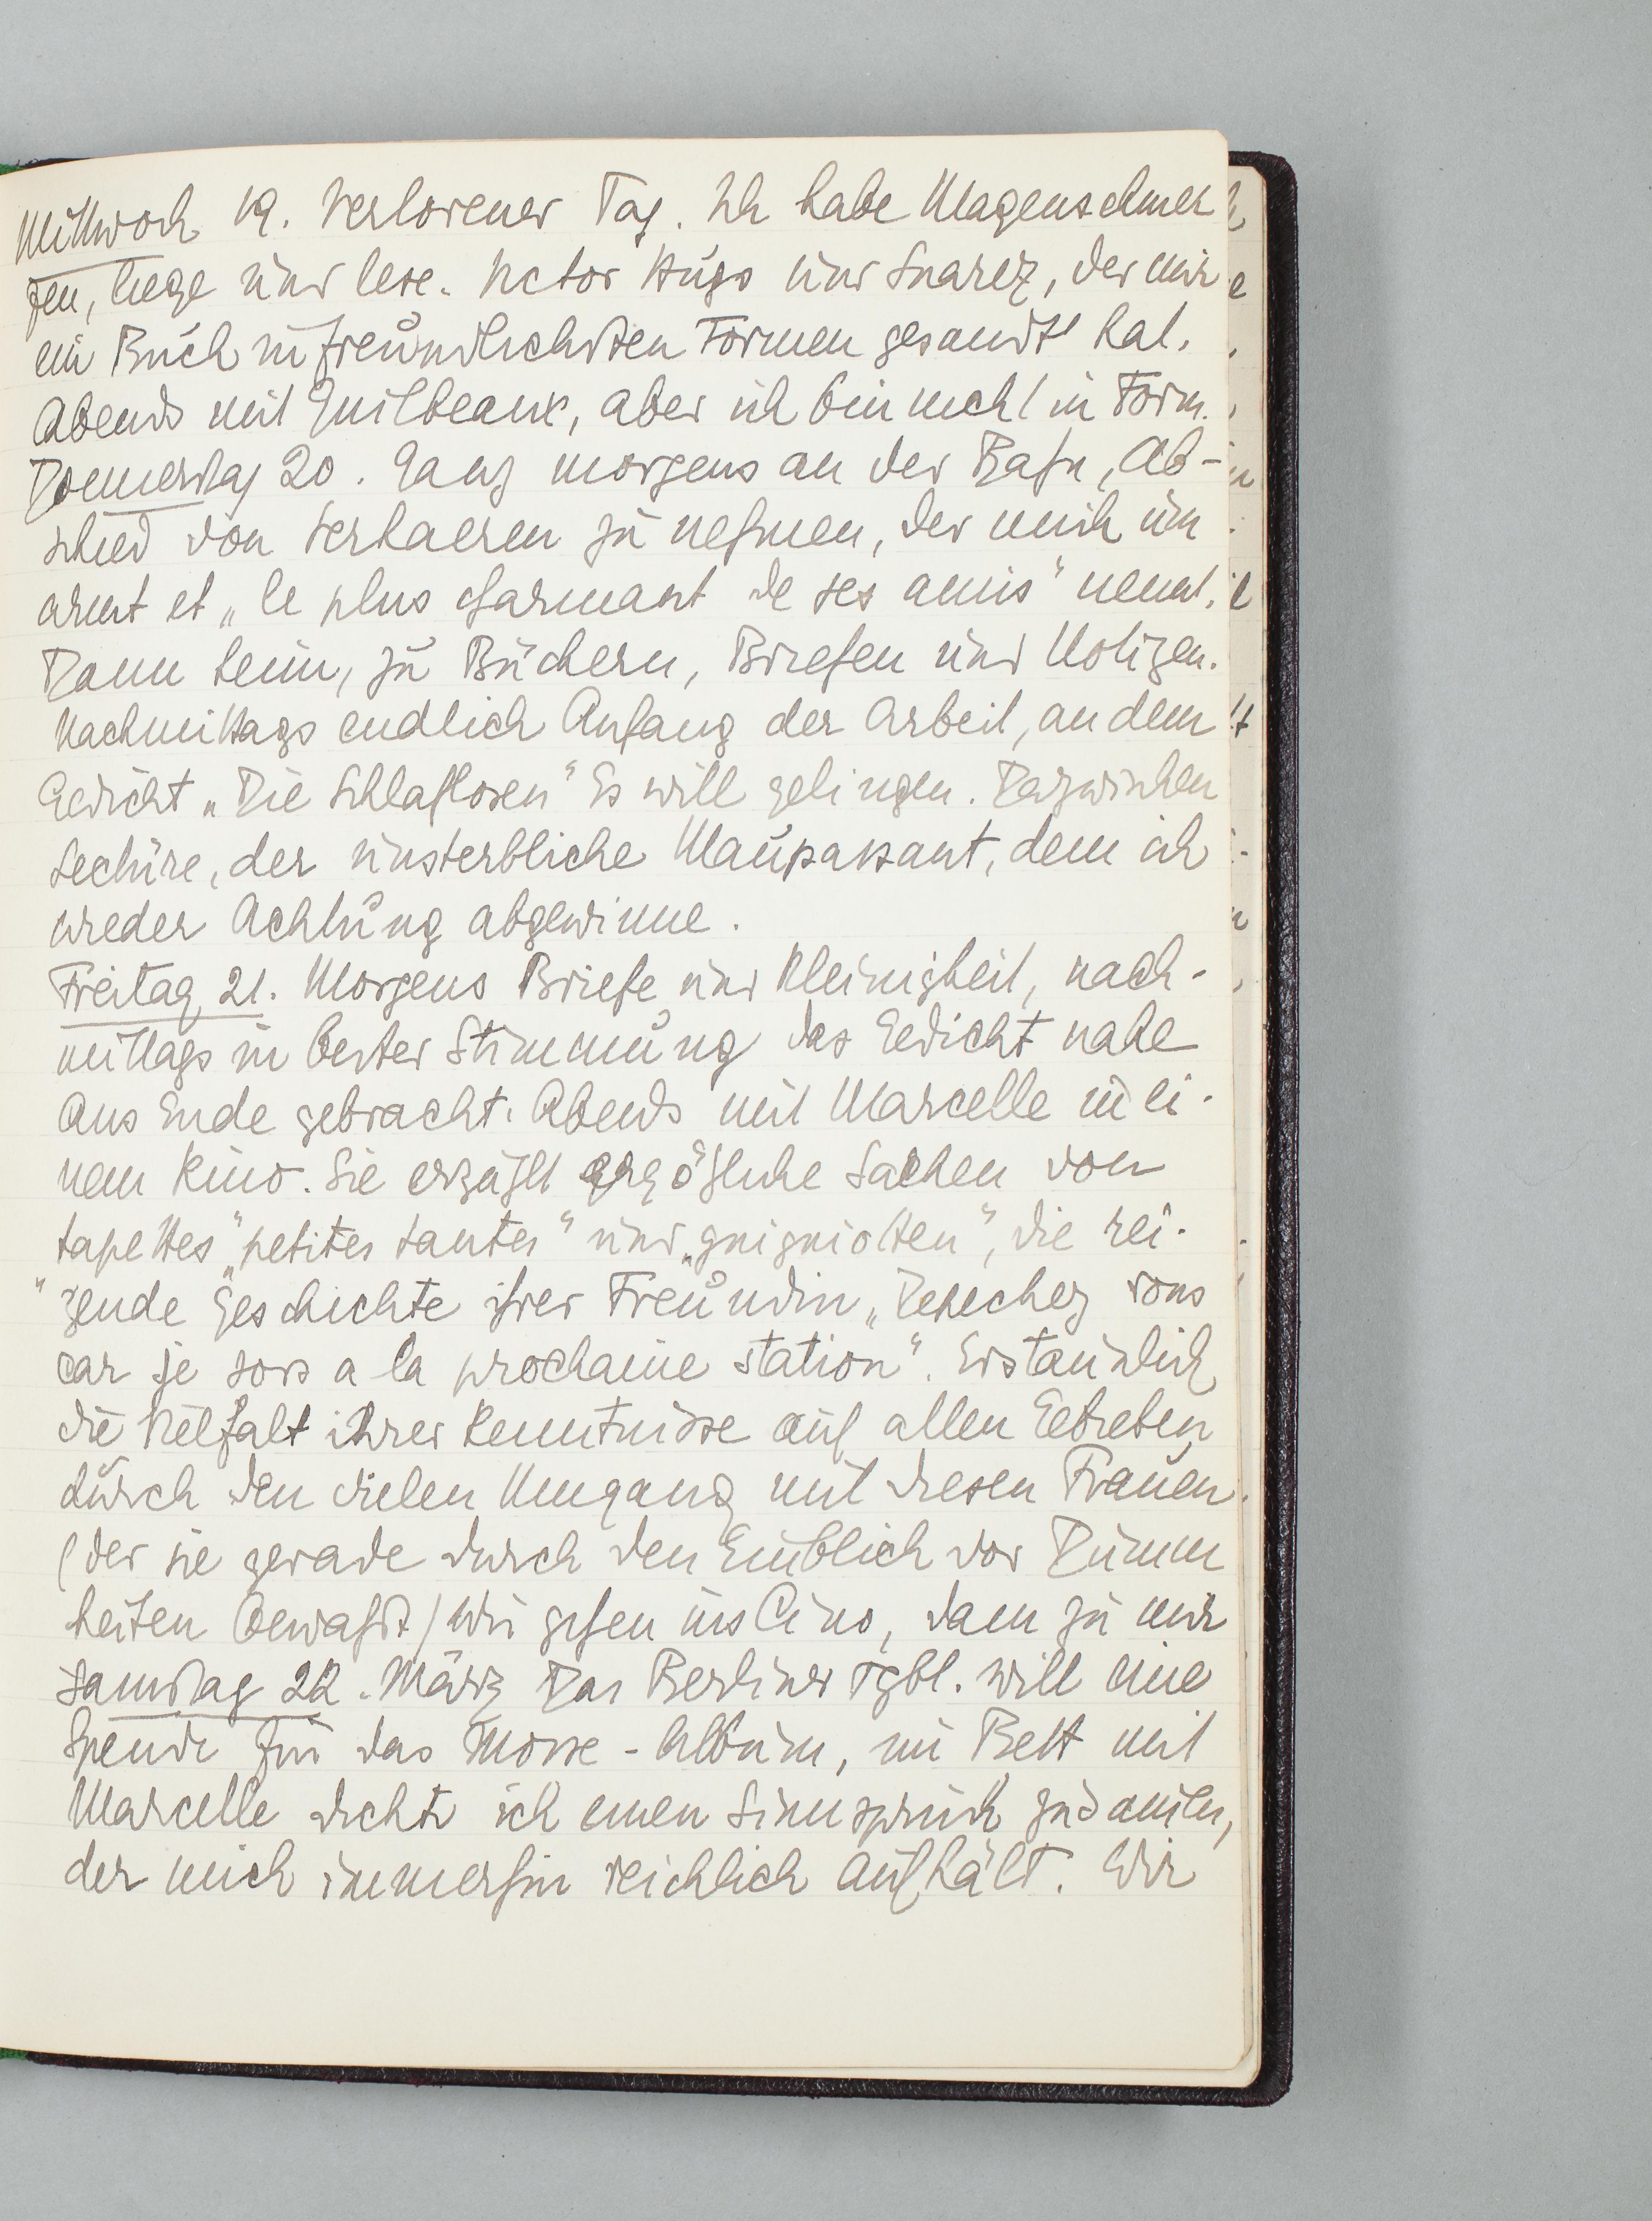 Mittwoch 19. Verlorener Tag. Ich habe Magenschmer
zen, liege und lese. Victor Hugo und Suarez, der mir
ein Buch in freundlichsten Formen gesandt hat.
Abends mit Guilbeaux, aber ich bin nicht in Form.
Donnerstag 20. Ganz morgens an der Bahn, Ab-
schied von Verhaeren zu nehmen, der mich um
armt et „le plus charmant de ses amis" nennt.
Dann heim, zu Büchern, Briefen und Notizen.
Nachmittags endlich Anfang der Arbeit, an dem
Gedicht „Die Schlaflosen" Es will gelingen. Dazwischen
Lectüre, der unsterbliche Maupassant, dem ich
wieder Achtung abgewinne.
Freitag 21. Morgens Briefe und Kleinigkeit, nach-
mittags in bester Stimmung das Gedicht nahe
ans Ende gebracht. Abends mit Marcelle in ei-
nem Kino. Sie erzählt ergötzliche Sachen von
tapettes "petites tantes" und „guigniolten", die rei-
"zende Geschichte ihrer Freundin „Depechez vous
car je sors a la prochaine station". Erstaunlich
die Vielfalt ihrer Kenntnisse auf allen Gebieten
durch den vielen Umgang mit diesen Frauen.
(der sie gerade durch den Einblick vor Dumm
heiten bewahrt) Wir gehen ins Cino, dann zu mir
Samstag 22. März Das Berliner Tgbl. will eine
Spende für das Mosse-Album, im Bett mit
Marcelle dichte ich einen Sinnspruch zusammen,
der mich immerhin reichlich aufhält. Wir